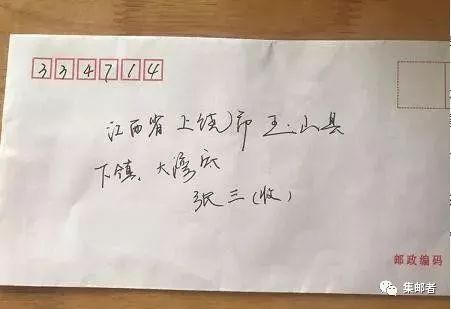 334714
江西省上饶市玉山县
下镇、大湾底
张三(收)
邮政编码
集邮者